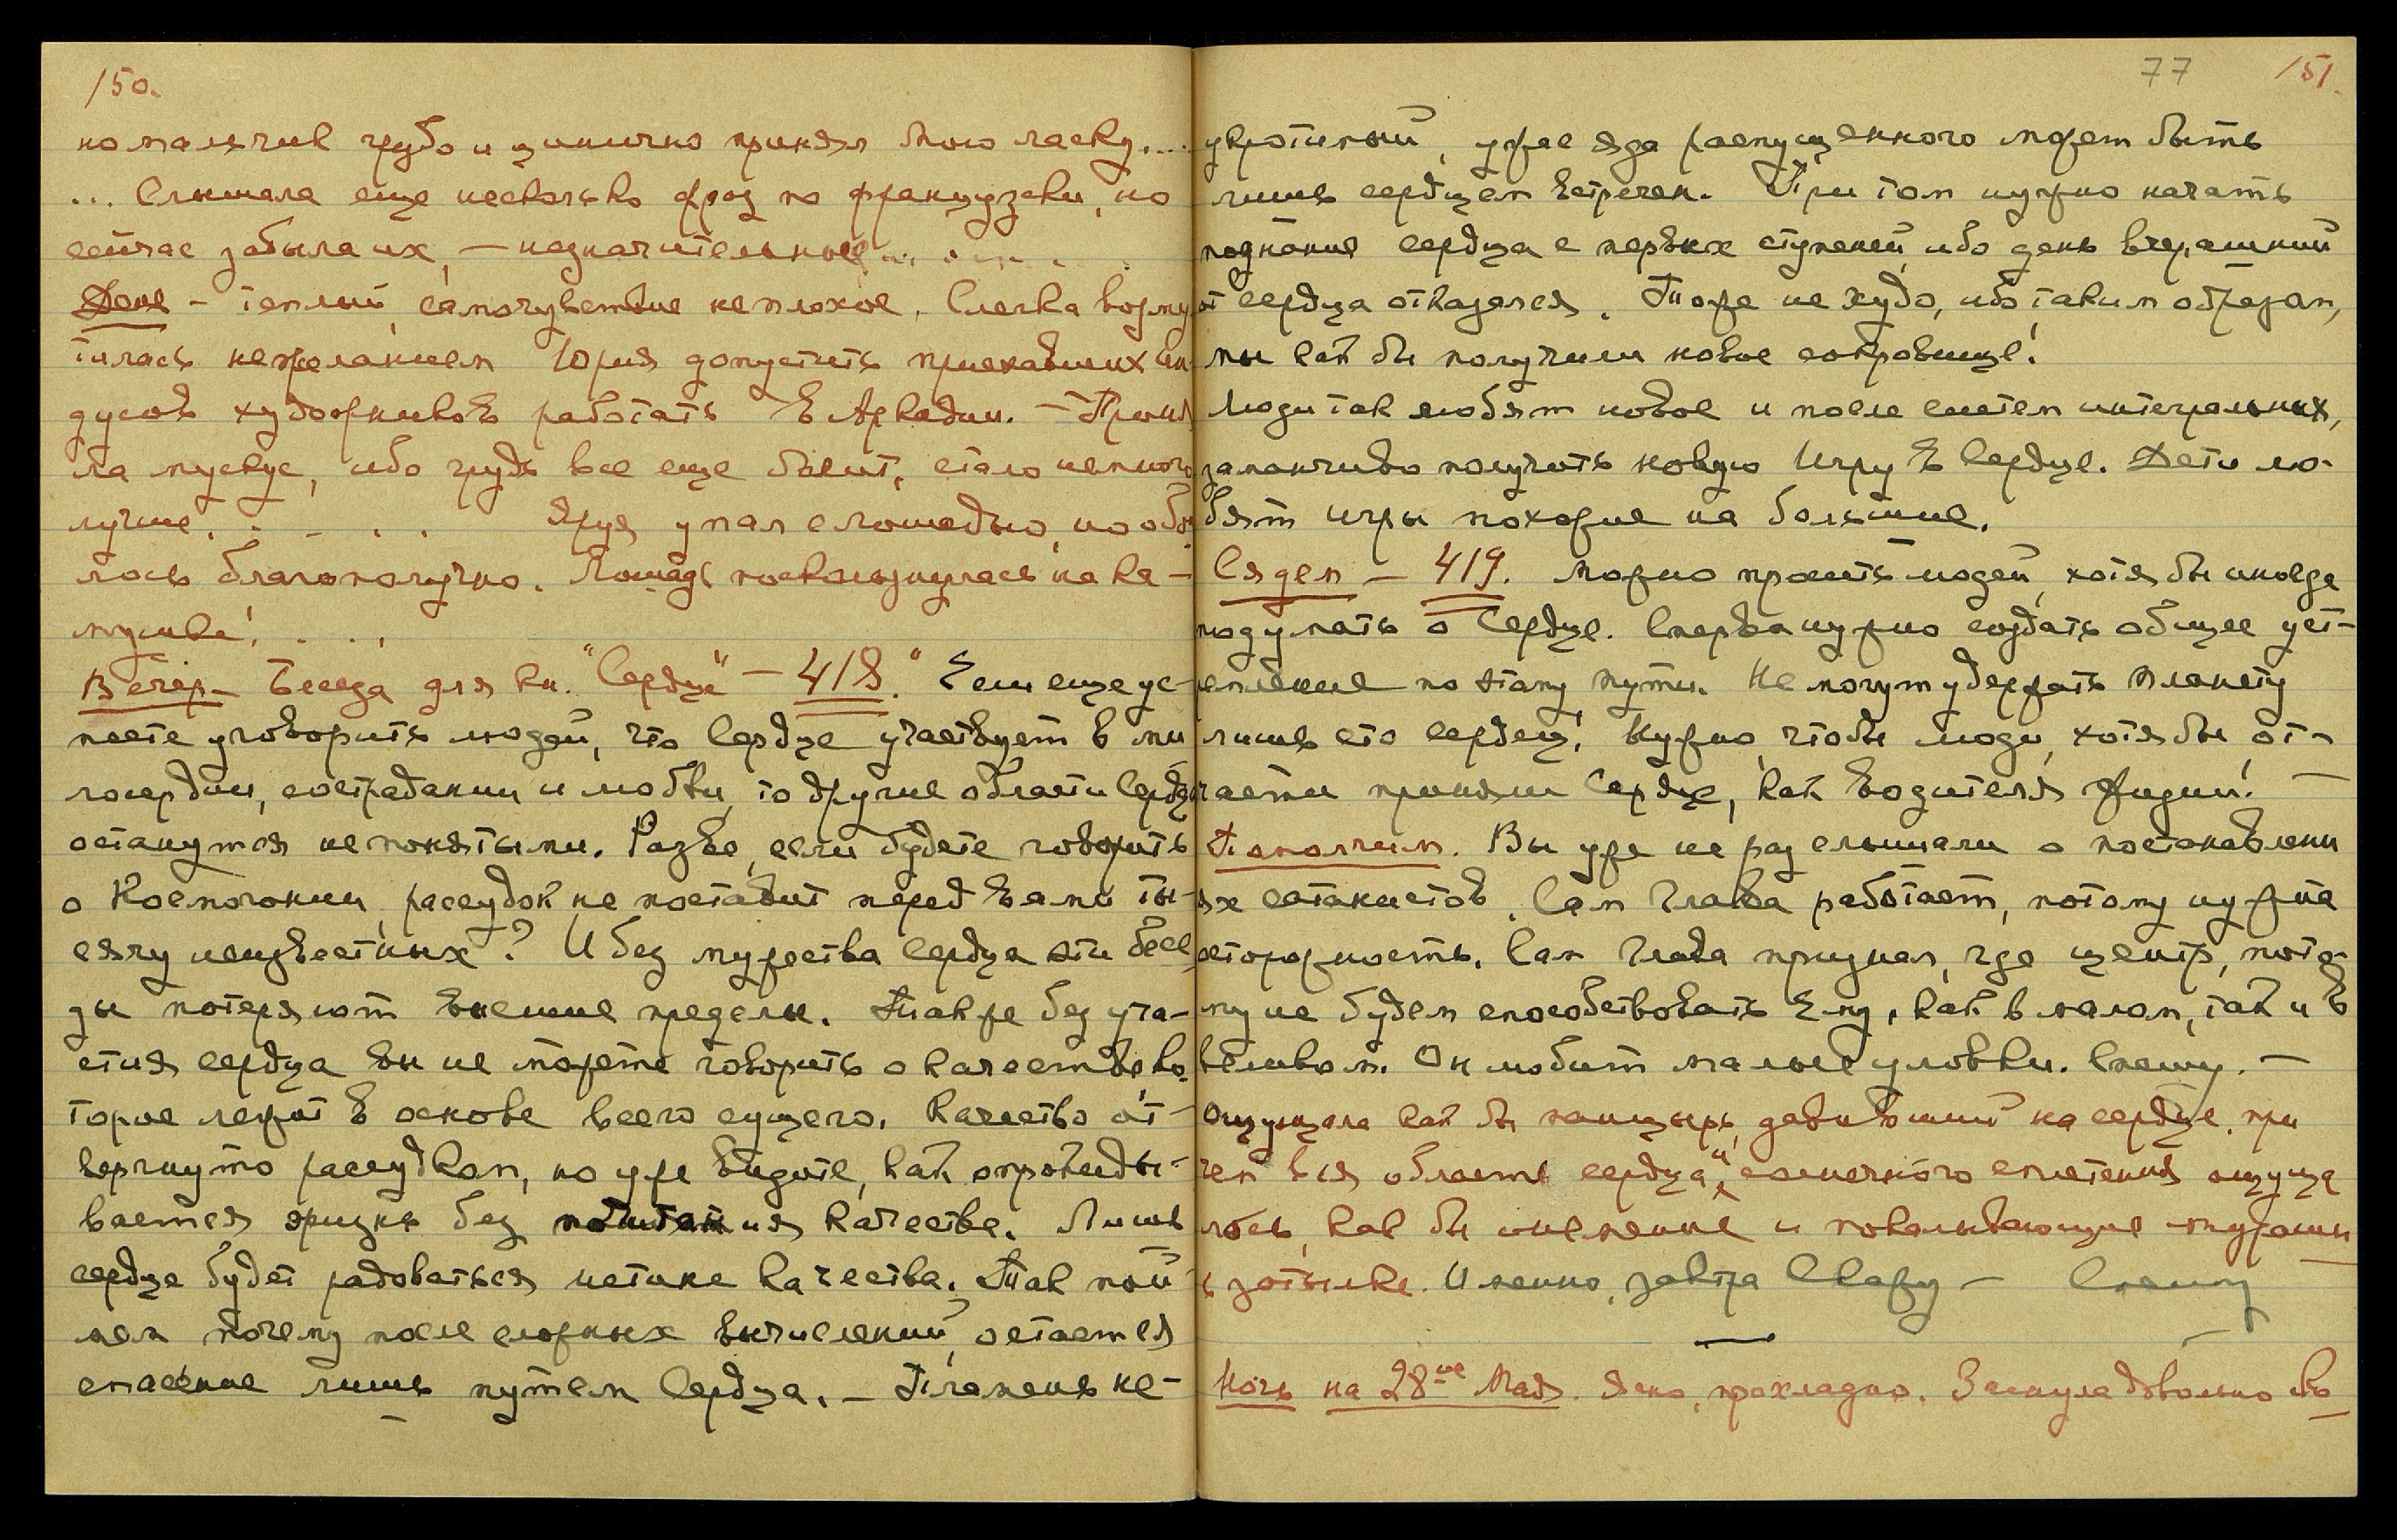 150.
но мальчик грубо и цинично принял мою ласку....
... Слышала еще несколько фраз по французски, но
сейчас забыла их, — незначительные... . ... . .
День – теплый, самочувствие неплохое. Слегка возму
тилась нежеланием Юрия допустить приехавших ин
дусов художников работать в Аркадии. – Приня
ла мускус, ибо грудь все еще болит, стало немного
лучше. . . . . Яруя упал с лошадью, но обо
лось благополучно. Лошадь поскользнулась на ка-
мушке! . . .
Вечер – Беседа для кн. "Сердце" – 418." Если еще ус-
пеете уговорить людей, что Сердце участвует в ми
лосердии, сострадании и любви, то другие области Сердца
останутся непонятыми. Разве, если будете говорить
о Космогонии, рассудок не поставит перед вами ты-
сячу неизвестных? И без мужества Сердца эти бесе
ды потеряют высшие пределы. Также без уча-
стия сердца вы не можете говорить о качестве, ко
торое лежит в основе всего сущего. Качество от-
вергнуто рассудком, но уже видите, как опровиды-
вается жизнь без почитания качества. Лишь
сердце будет радоваться истине качества. Так пой
мем почему после сложных вычислений, остается
спасение лишь путем Сердца. – Пламень не-
77 151.
укротимый, уже яда распущенного может быть
лишь сердцем встречен. При том нужно начать
познание сердца с первых ступеней, ибо день вчерашний
от сердца отказался. Тоже не худо, ибо таким образом,
мы как бы получили новое сокровище!
Люди так любят новое и после систем интегральных,
заманчиво получить новую Игру в Сердце. Дети лю-
бят игры похожие на большие.
Сядем – 419. Можно просить людей, хотя бы иногда
подумать о Сердце. Сперва нужно создать общее уст-
ремление по этому пути. Не могут удержать планету
лишь сто сердец! Нужно, чтобы люди, хотя бы, от-
части приняли Сердце, как водителя жизни! —
Помолчим. Вы уже не раз слышали о постановлени
ях сатанистов. Сам Глава работает, потому нужна
осторожность. Сам Глава признал, где центр, пото-
му не будем способствовать Ему, как в малом, так и в
великом. Он любит малые уловки. Спешу. —
Ощущала как бы панцырь, давивший на сердце, при
чем вся область сердца и солнечного сплетения ощуща
лось, как бы онемение и покалывающие мурашки
в затылке. Именно, завтра Скажу – Спешу
—
Ночь на 28ое Мая. Ясно, прохладно. Заснула довольно ско